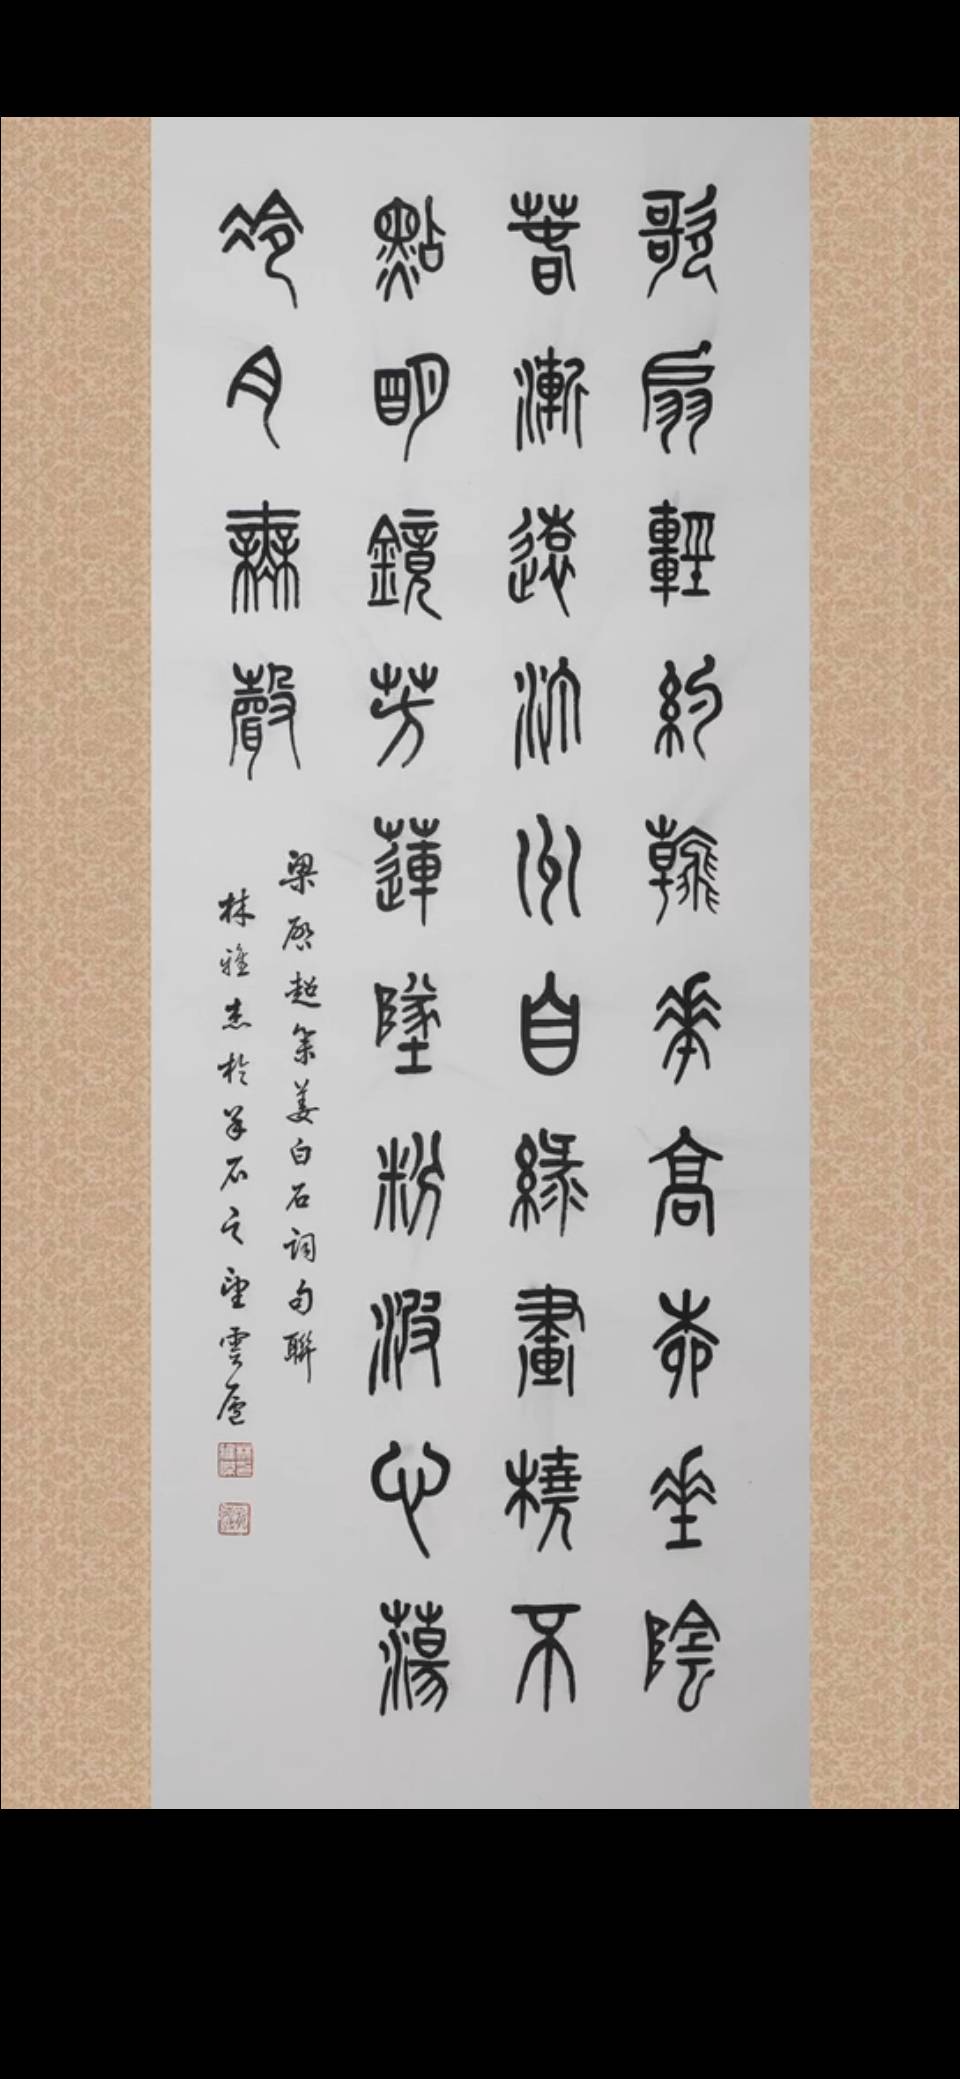 歌扇輕約飛花高柳垂陰
春漸遠汀洲自綠畫橈不
點明鏡芳蓮墜粉波心蕩
冷月無聲
梁啓超集姜白石詞句聯
林雅杰於羊石之望雲廬